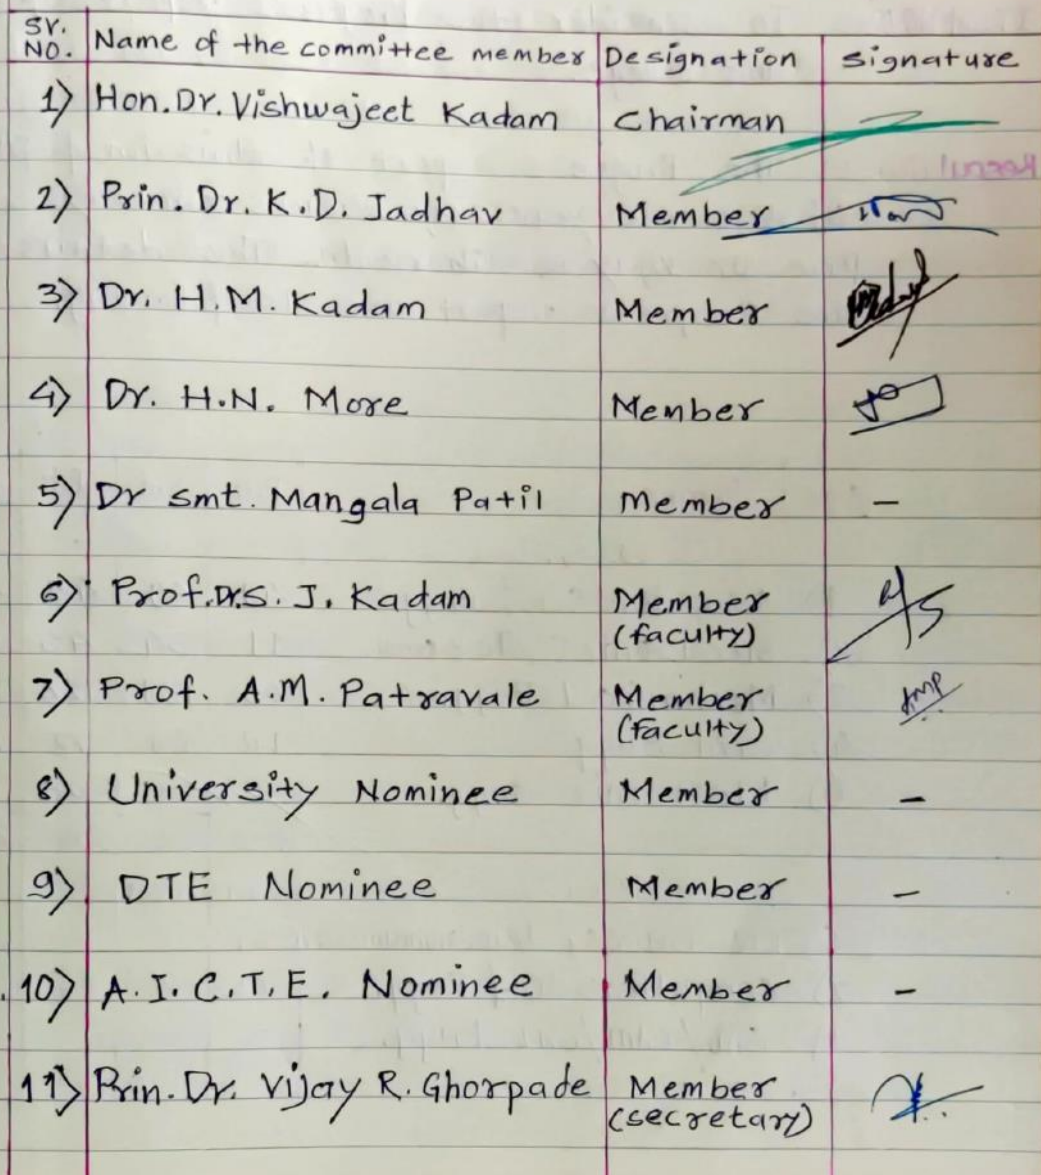 Sr. No. Name of the committee member Designation Signature
1) Hon. Dr. Vishwajeet Kadam Chairman
2) Prin. Dr. K.D. Jadhav Member
3) Dr. H.M. Kadam Member
4) Dr. H.N. More Member
5) Dr Smt. Mangala Patil Member –
6) Prof. Dr. S. J. Kadam Member
(faculty)
7) Prof. A.M. Patravale Member
(faculty)
8) University Nominee Member –
9) DTE Nominee Member –
10) A.I.C.T.E. Nominee Member –
11) Prin. Dr. Vijay R. Ghorpade Member
(secretary)